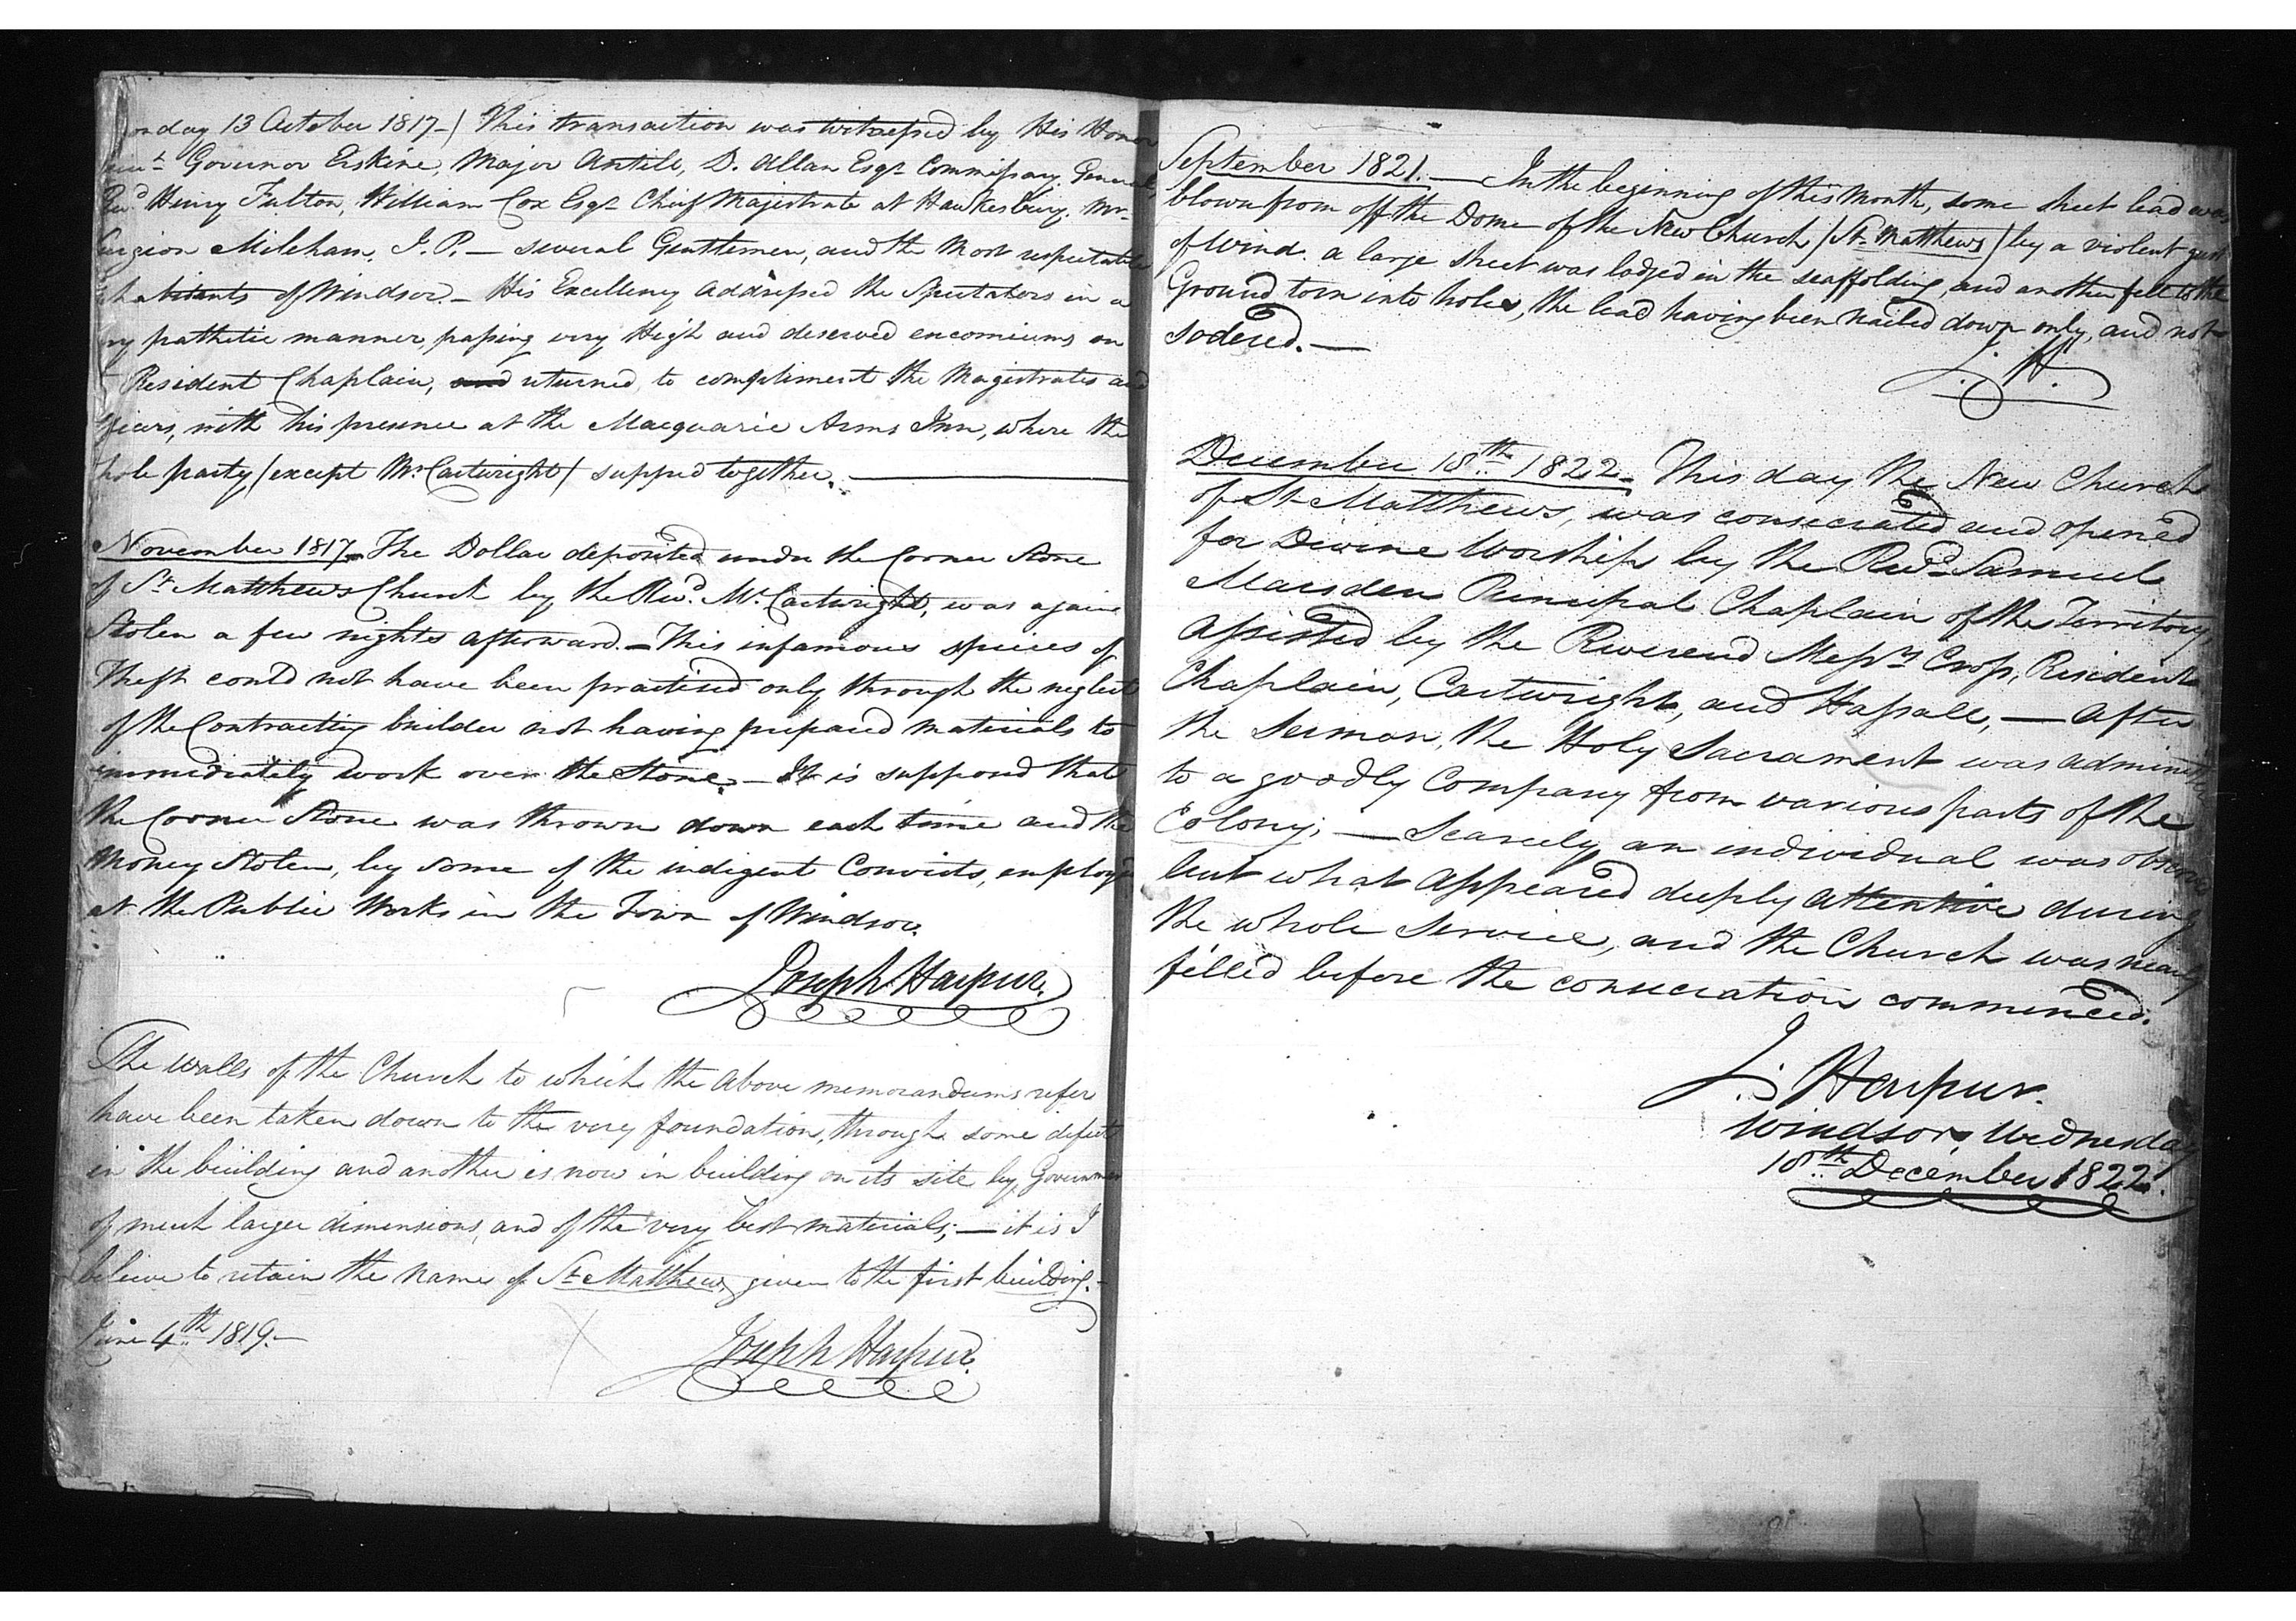 onday 13 October 1817-) This transaction was witnessed by His Honor
Governor Erskine, Major Antill, D. Allan Esqr. Commissary General,
Revd. Henry Fulton, William Cox Esqr. Chief Magistrate at Hawkesbury. Mr.
urgion Mileham. J. P. — several Gentlemen, and the most respectable
habitants of Windsor. — His Excellency Addressed the Spectators in a
ry pathetic manner, passing very High and deserved encomiums on
Resident Chaplain, and returned to compliment the Magistrates and
fficers, with his presence at the Macquarie Arms Inn, where the
hole party (except Mr. Cartwright) supped together. —
November 1817 — The Dollar deposited under the Corner Stone
of St. Matthews Church by the Revd. Mr. Cartwright, was again
Stolen a few nights afterward. — This infamous species of
Theft could not have been practised only through the neglect
of the Contracting builder not having prepared materials to
immediately work over the Stone. — It is supposed that
the Corner Stone was thrown down each time and the
Money Stolen, by some of the indigent Convicts, employ'd
at the Public Works in the Town of Windsor.
Joseph Harpur.
The walls of the Church to which the above memorandums refer
have been taken down to the very foundation, through some defect
in the building and another is now in building on its site by Governmen
of much larger dimensions, and of the very best materials; — it is I
believe to retain the name of St. Matthew, given to the first building. —
June 4th. 1819. —
Joseph Harpur.
September 1821. — In the beginning of this Month, some sheet lead was
blown from off the Dome of the New Church (St. Matthews) by a violent gust
of Wind. a large sheet was lodged in the scaffolding, and another fell to the
Ground torn into holes, the lead having been nailed down only, and not
sodered. —
J. H.
December 18th. 1822. This day the New Church
of St. Matthews, was consecrated and opened
for Divine Worship by the Revd. Samuel
Marsden Principal Chaplain of the Territory,
assisted by the Reverend Messrs Cross, Resident
Chaplain, Cartwright, and Hassall, — After
the Sermon, the Holy Sacrament was administer
to a goodly Company from various parts of the
Colony; — Scarcely an individual was observ
but what appeared deeply attentive during
the whole Service, and the Church was nearly
filled before the consecration commenced.
J. Harpur.
Windsor Wednesday
18th December 1822.